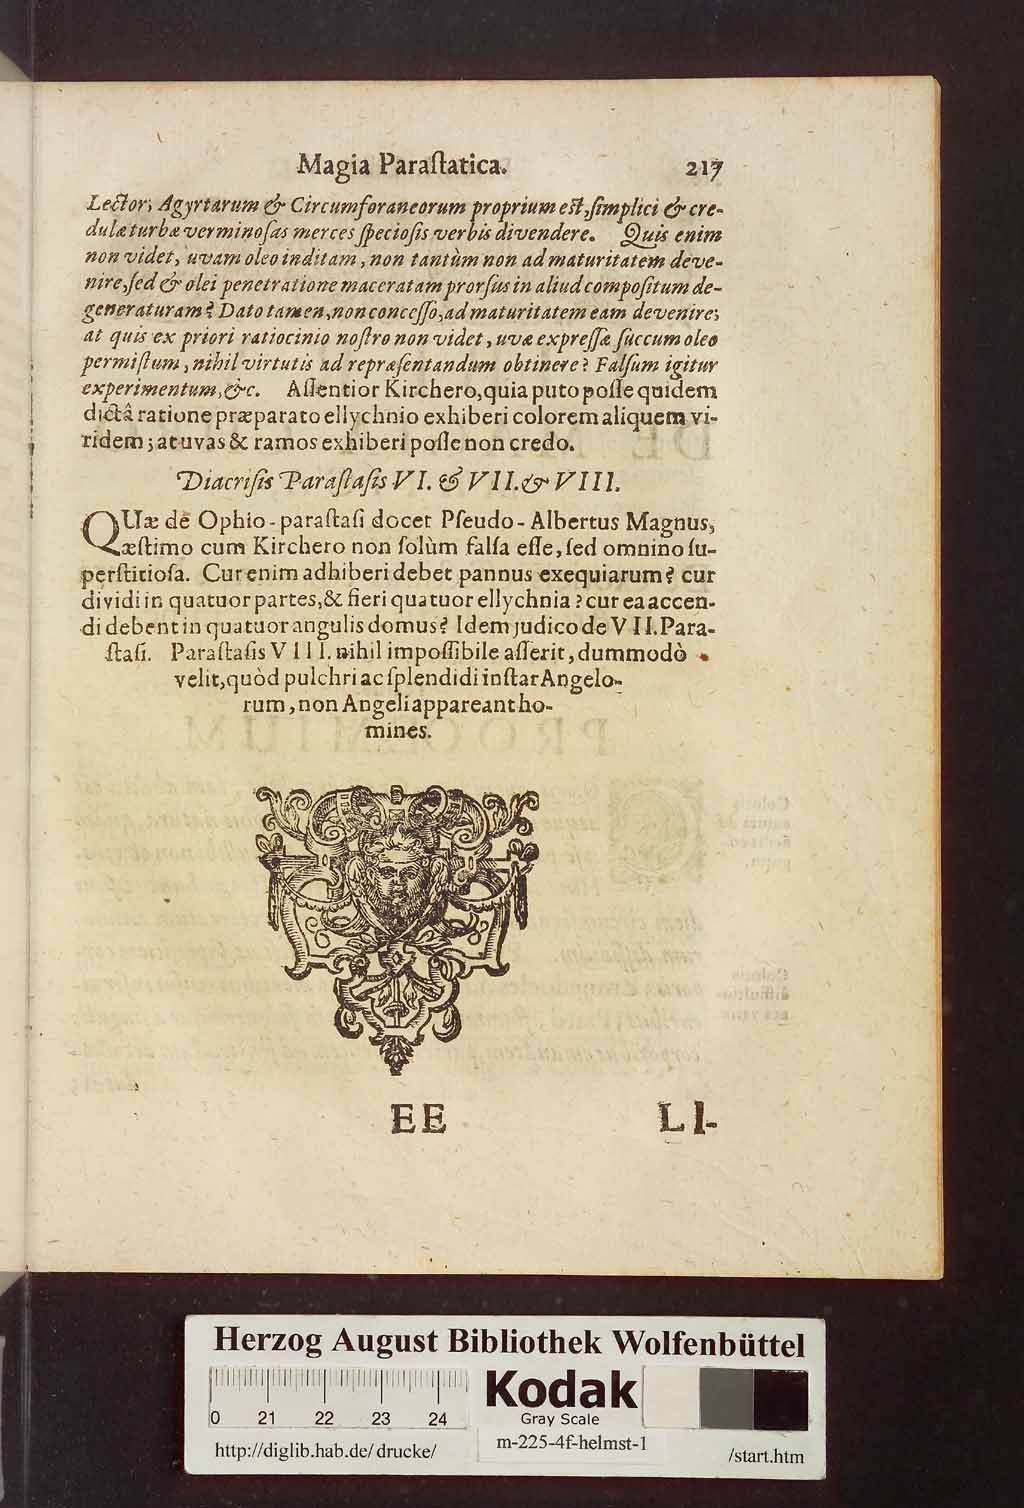 Magia Paraſtatica. 217
Lector; Agyrtarum & Circumforaneorum proprium eſt, ſimplici & cre-
dulæ turbæ verminoſas merces ſpecioſis verbis divendere. Quis enim
non videt, uvam oleo inditam, non tantùm non ad maturitatem deve-
nire, ſed & olei penetratione maceratam prorſus in aliud compoſitum de-
generaturam? Dato tamen, non conceſſo, ad maturitatem eam devenire;
at quis ex priori ratiocinio noſtro non videt, uvæ expreſſæ ſuccum oleo
permiſtum, nihil virtutis ad repræſentandum obtinere? Falſum igitur
experimentum, &c. Aſſentior Kirchero, quia puto poſſe quidem
dictâ ratione præparato ellychnio exhiberi colorem aliquem vi-
ridem; at uvas & ramos exhiberi poſſe non credo.
Diacriſis Paraſtaſis VI. & VII. & VIII.
QUæ de Ophio-paraſtaſi docet Pſeudo-Albertus Magnus,
æſtimo cum Kirchero non ſolùm falſa eſſe, ſed omnino ſu-
perſtitioſa. Cur enim adhiberi debet pannus exequiarum? cur
dividi in quatuor partes, & fieri quatuor ellychnia? cur ea accen-
di debent in quatuor angulis domus? Idem judico de VII. Para-
ſtaſi. Paraſtaſis VIII. nihil impoſſibile aſſerit, dummodò
velit, quòd pulchri ac ſplendidi inſtar Angelo-
rum, non Angeli appareant ho-
mines.
EE LI-
Herzog August Bibliothek Wolfenbüttel
0 21 22 23 24
Kodak
Gray Scale
http://diglib.hab.de/drucke/ m-225-4f-helmst-1 /start.htm